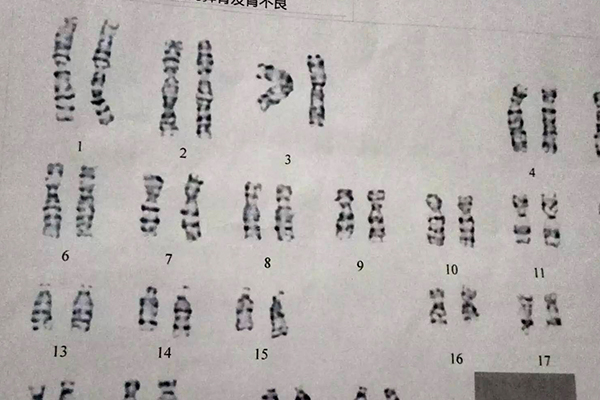 育及骨不良
1
2
3
4
6
7
8
9
10
11
13
14
15
16
17